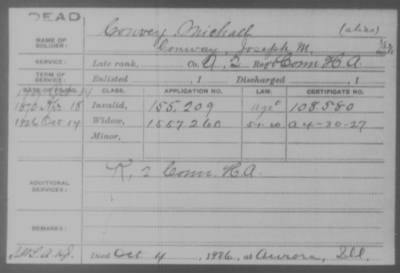 DEAD
NAME OF SOLDIER: Convey Michael
Conway, Joseph M. (alias)
SERVICE: Late rank, Co. A, 2 Reg't Conn H.A
TERM OF SERVICE: Enlisted , 1 Discharged , 1
DATE OF FILING. CLASS. APPLICATION NO. LAW. CERTIFICATE NO.
1870 18 Invalid, 155.209 108580
1926 Oct 14 Widow, 1557260 A 4-30-27
Minor,
ADDITIONAL SERVICES: K, 2 Conn. H.A.
REMARKS:
Died Oct 4, 1926, at Aurora, Ill.